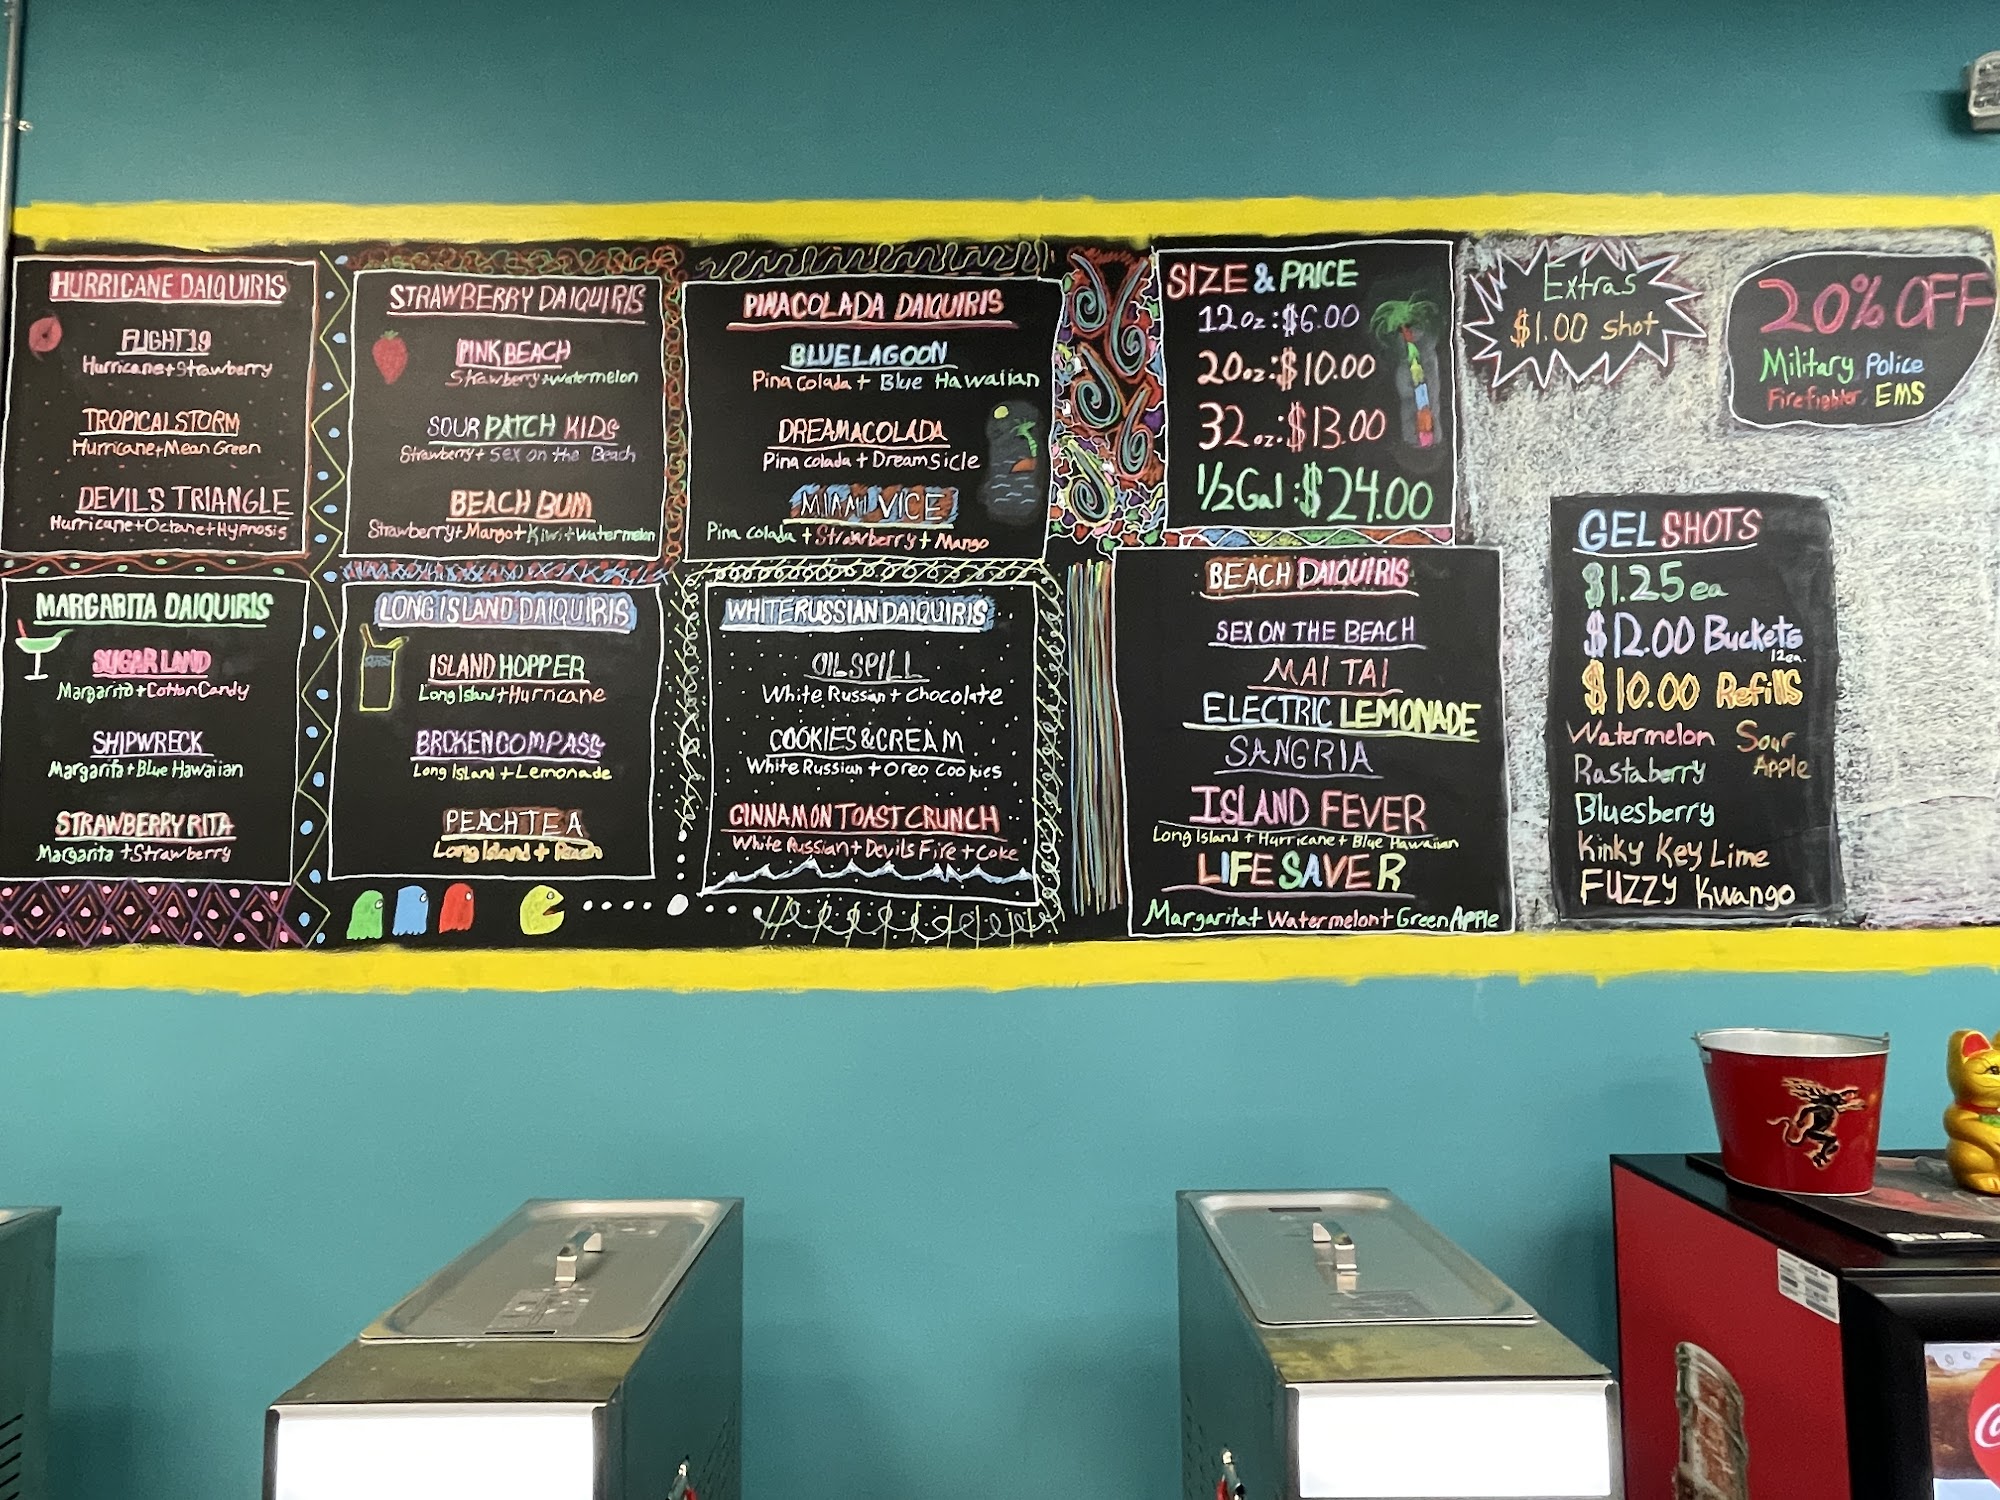 HURRICANE DAIQUIRIS
FLIGHT 19
Hurricane+Strawberry
TROPICAL STORM
Hurricane+Mean Green
DEVIL'S TRIANGLE
Hurricane+Octane+Hypnosis
STRAWBERRY DAIQUIRIS
PINK BEACH
Strawberry+Watermelon
SOUR PATCH KIDS
Strawberry+ Sex on the Beach
BEACH BUM
Strawberry+Mango+Kiwi+Watermelon
PINACOLADA DAIQUIRIS
BLUE LAGOON
Pina Colada + Blue Hawaiian
DREAMACOLADA
Pina colada + DreamSicle
MIAMI VICE
Pina colada + Strawberry + Mango
SIZE & PRICE
12oz:$6.00
20oz:$10.00
32oz:$13.00
1/2Gal:$24.00
Extras
$1.00 shot
20% OFF
Military Police
Firefighter, EMS
MARGARITA DAIQUIRIS
SUGAR LAND
Margarita+CottonCandy
SHIPWRECK
Margarita+Blue Hawaiian
STRAWBERRY RITA
Margarita +Strawberry
LONG ISLAND DAIQUIRIS
ISLAND HOPPER
Long Island+Hurricane
BROKEN COMPASS
Long Island +Lemonade
PEACH TEA
Long Island + Peach
WHITE RUSSIAN DAIQUIRIS
OIL SPILL
White Russian + Chocolate
COOKIES & CREAM
White Russian + Oreo Cookies
CINNAMON TOAST CRUNCH
White Russian+ Devils Fire + Coke
BEACH DAIQUIRIS
SEX ON THE BEACH
MAI TAI
ELECTRIC LEMONADE
SANGRIA
ISLAND FEVER
Long Island + Hurricane + Blue Hawaiian
LIFE SAVER
Margarita+ Watermelon+ Green Apple
GEL SHOTS
$1.25 ea
$12.00 Buckets
12ea.
$10.00 Refills
Watermelon Sour
Rastaberry Apple
Bluesberry
Kinky Key Lime
FUZZY Kwango